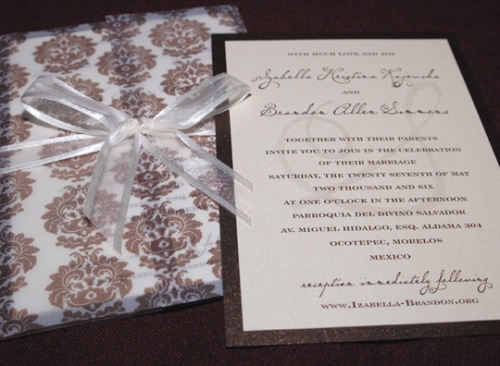 WITH MUCH LOVE AND JOY
Izabella Kristina Kajewska
AND
Brandon Allen Simmons
TOGETHER WITH THEIR PARENTS
INVITE YOU TO JOIN IN THE CELEBRATION
OF THEIR MARRIAGE
SATURDAY, THE TWENTY SEVENTH OF MAY
TWO THOUSAND AND SIX
AT ONE O'CLOCK IN THE AFTERNOON
PARROQUIA DEL DIVINO SALVADOR
AV. MIGUEL HIDALGO, ESQ. ALDAMA 304
OCOTEPEC, MORELOS
MEXICO
reception immediately following
WWW.IZABELLA-BRANDON.ORG